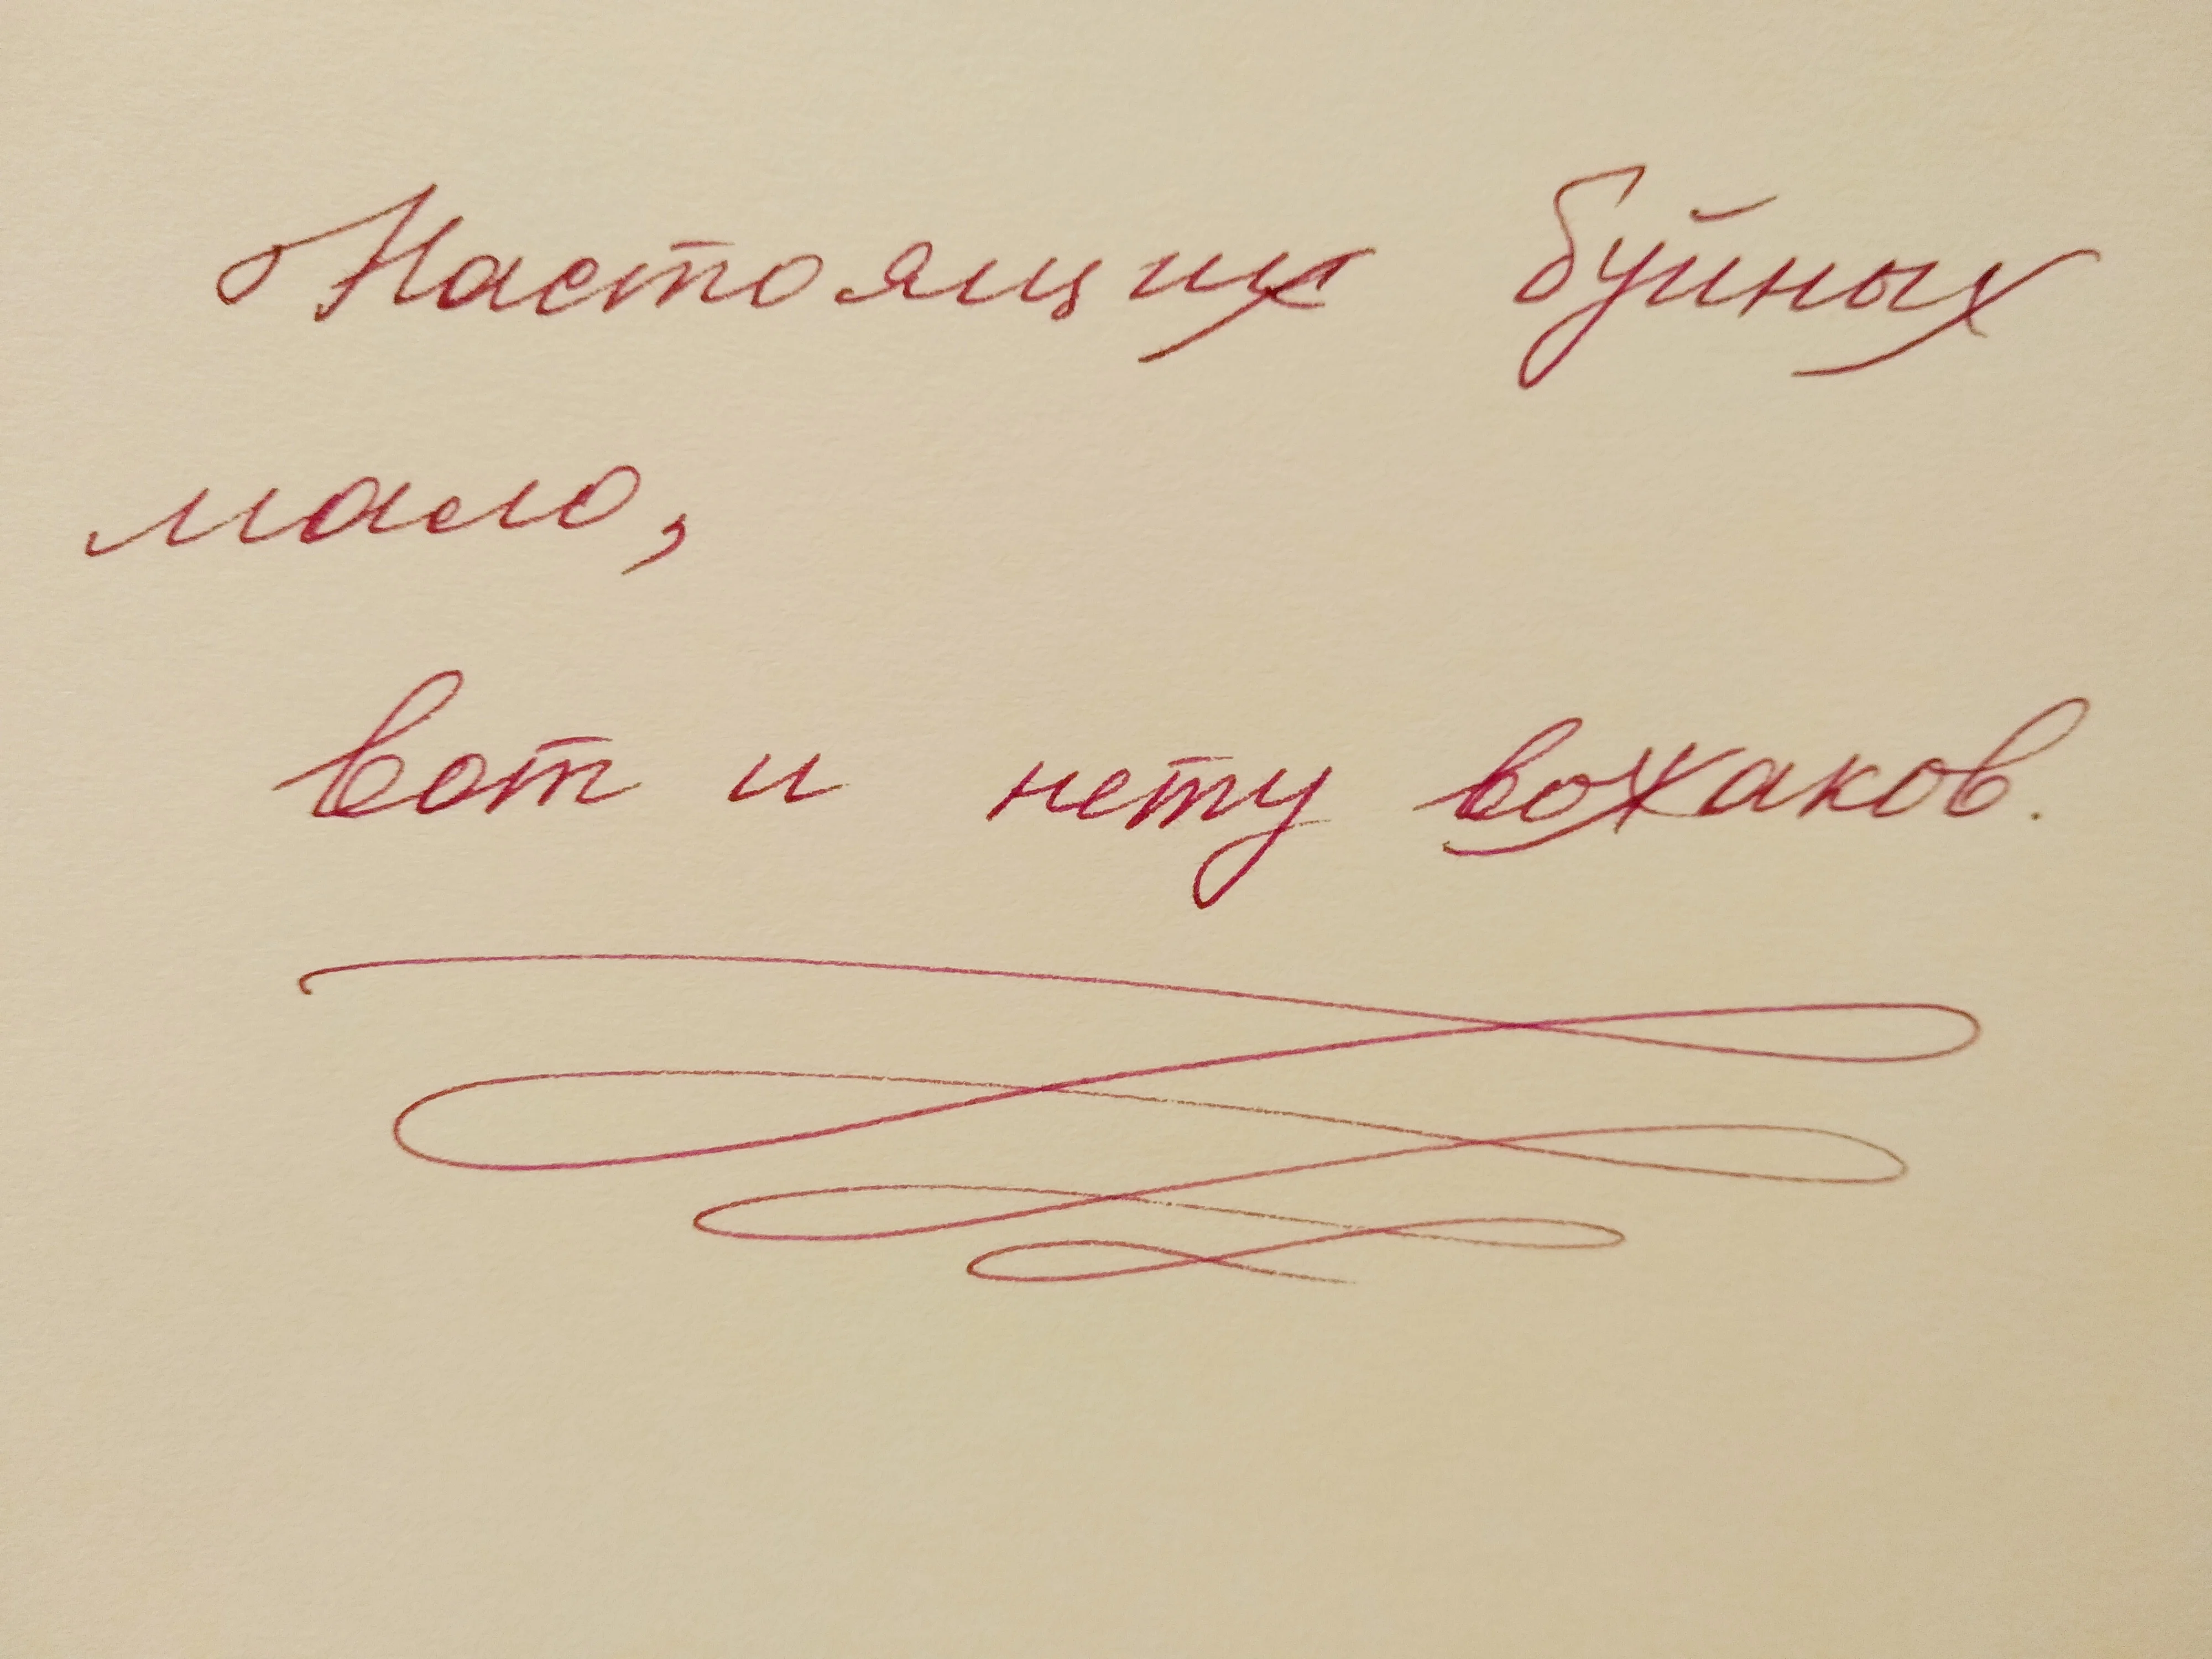 Настоящих буйных
мало,
вот и нету вожаков.